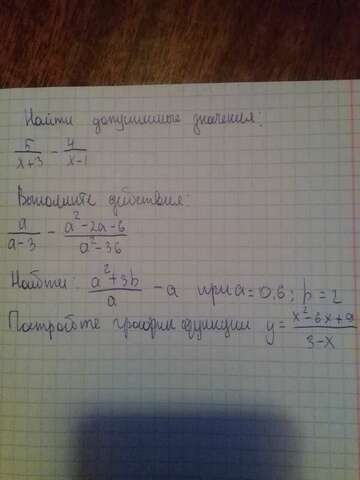 Найти допустимые значения:
5/(x+3) - 4/(x-1)
Выполните действия:
a/(a-3) - (a²-2a-6)/(a²-36)
Найдти: (a²+3b)/a - a при a=0.6; b=2
Постройте график функции y= (x²-6x+9)/(3-x)